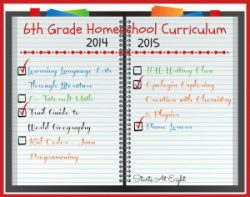 6th Grade Homeschool Curriculum
2014 2015
Learning Language Arts
Through Literature
Trail Guide to
World Geography
Kid Coder - Java
Programming
IEW Writing
Apologia Exploring
Creation with Chemistry
& Physics
Piano Lessons
Starts At Eight